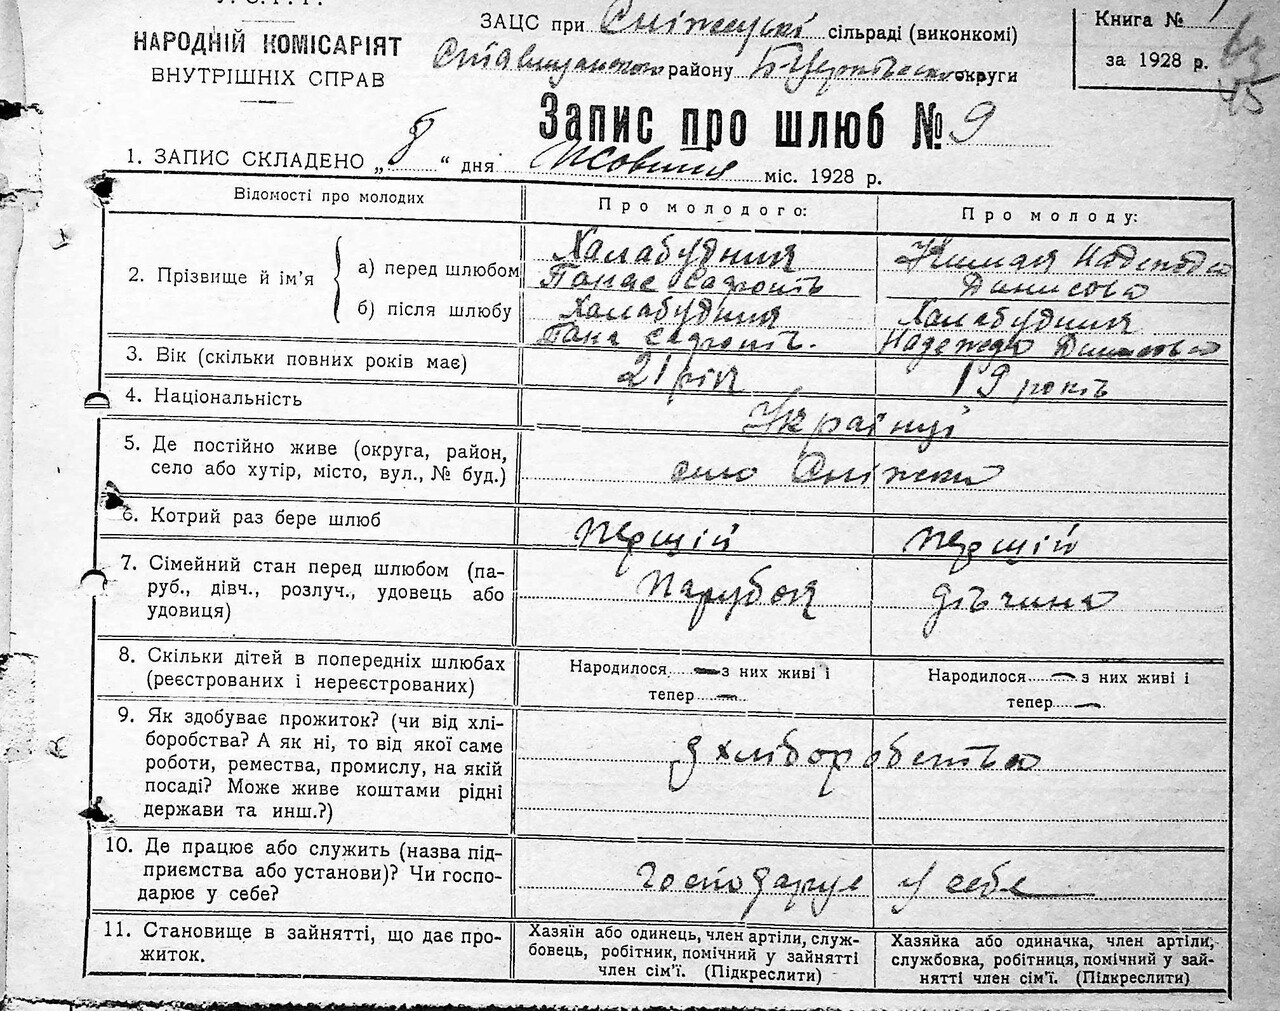 У.С.Р.Р.
НАРОДНІЙ КОМІСАРІЯТ
ВНУТРІШНІХ СПРАВ
ЗАЦС при сільраді (виконкомі)
району округи
Книга №
за 1928 р.
Запис про шлюб № 9
1. ЗАПИС СКЛАДЕНО „ 8 “ дня Жовтня міс. 1928 р.
Відомості про молодих
Про молодого:
Про молоду:
2. Прізвище й ім'я
а) перед шлюбом
Халабудний
Панас
Надежда
Данисова
б) після шлюбу
Халабудний
Халабудний
Надежда
3. Вік (скільки повних років має)
21 рік
19 років
4. Національність
Українці
5. Де постійно живе (округа, район,
село або хутір, місто, вул., № буд.)
село Сніжки
6. Котрий раз бере шлюб
перший
перший
7. Сімейний стан перед шлюбом (па-
руб., дівч., розлуч., удовець або
удовиця)
Парубок
дівчина
8. Скільки дітей в попередніх шлюбах
(реєстрованих і нереєстрованих)
Народилося — з них живі і
тепер —
Народилося — з них живі і
тепер —
9. Як здобуває прожиток? (чи від хлі-
боробства? А як ні, то від якої саме
роботи, ремества, промислу, на якій
посаді? Може живе коштами рідні
держави та инш.?)
з хліборобства
10. Де працює або служить (назва під-
приємства або установи)? Чи госпо-
дарює у себе?
Господарує у себе
11. Становище в зайнятті, що дає про-
житок.
Хазяїн або одинець, член артіли, служ-
бовець, робітник, помічний у зайнятті
член сім'ї. (Підкреслити)
Хазяйка або одиначка, член артіли,
службовка, робітниця, помічний у зай-
нятті член сім'ї. (Підкреслити)